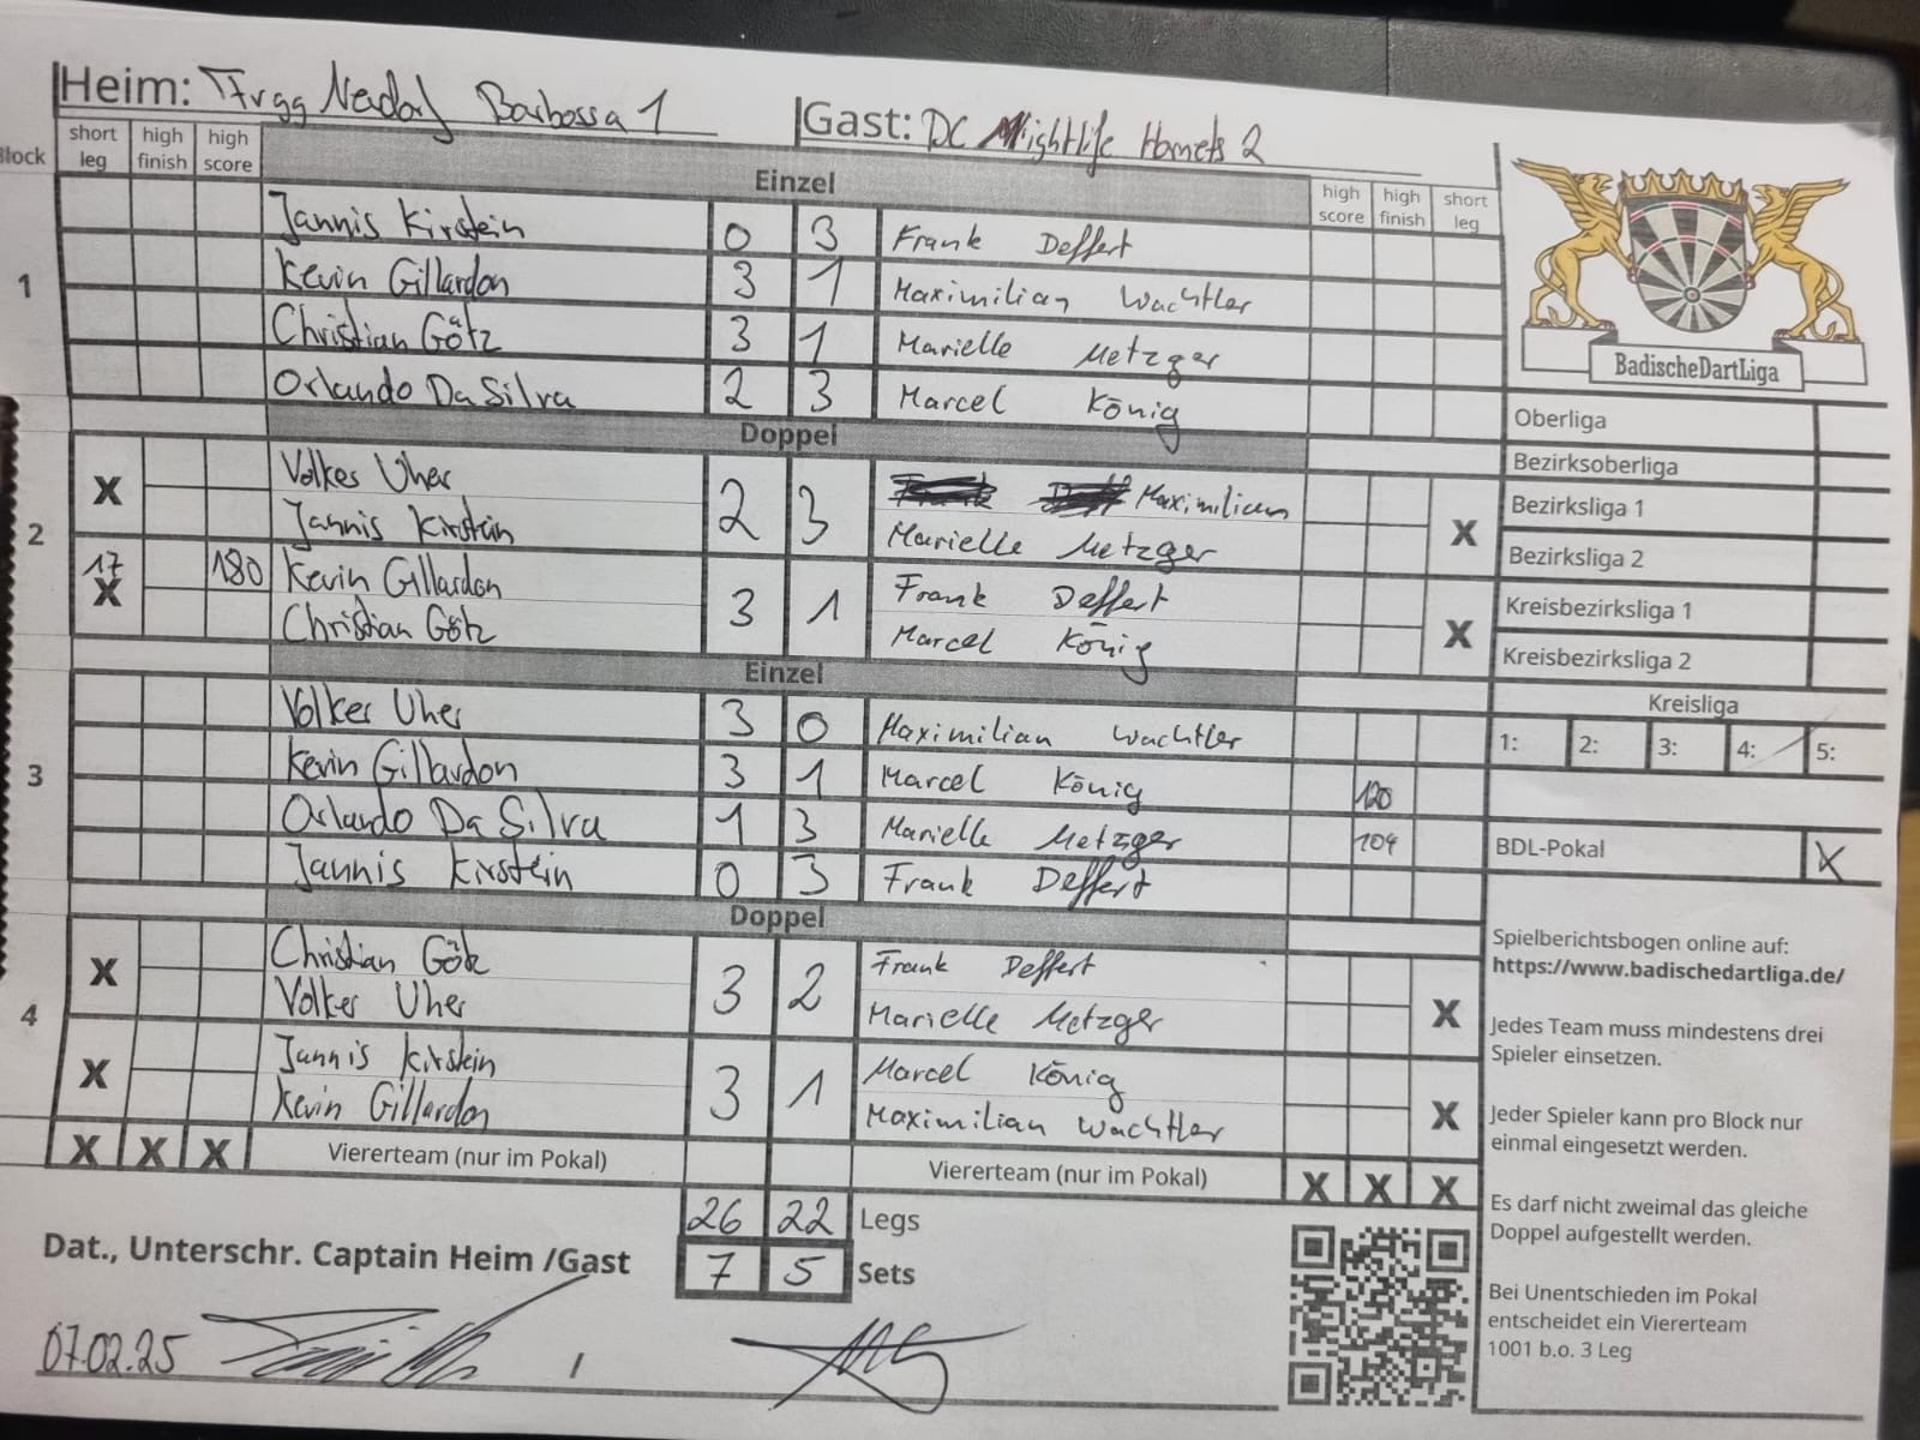 Heim: TFrgg Neudorf Barbossa 1
Gast: DC Nightlife Hornets 2
Block short leg high finish high score Einzel high score high finish short leg
1
Jannis Kirstein 0 3 Frank Deffert
Kevin Gillardon 3 1 Maximilian Wachtler
Christian Götz 3 1 Marielle Metzger
Orlando Da Silva 2 3 Marcel König
Doppel
2
X Volker Uher 2 3 Maximilian X
Jannis Kirstein Marielle Metzger
17 X 180 Kevin Gillardon 3 1 Frank Deffert X
Christian Götz Marcel König
Einzel
3
Volker Uher 3 0 Maximilian Wachtler
Kevin Gillardon 3 1 Marcel König 120
Orlando Da Silva 1 3 Marielle Metzger 104
Jannis Kirstein 0 3 Frank Deffert
Doppel
4
X Christian Götz 3 2 Frank Deffert X
Volker Uher Marielle Metzger
X Jannis Kirstein 3 1 Marcel König X
Kevin Gillardon Maximilian Wachtler
X X X Viererteam (nur im Pokal) Viererteam (nur im Pokal) X X X
26 22 Legs
7 5 Sets
Dat., Unterschr. Captain Heim /Gast
07.02.25 /
BadischeDartLiga
Oberliga
Bezirksoberliga
Bezirksliga 1
Bezirksliga 2
Kreisbezirksliga 1
Kreisbezirksliga 2
Kreisliga
1: 2: 3: 4: 5:
BDL-Pokal X
Spielberichtsbogen online auf:
https://www.badischedartliga.de/
Jedes Team muss mindestens drei
Spieler einsetzen.
Jeder Spieler kann pro Block nur
einmal eingesetzt werden.
Es darf nicht zweimal das gleiche
Doppel aufgestellt werden.
Bei Unentschieden im Pokal
entscheidet ein Viererteam
1001 b.o. 3 Leg